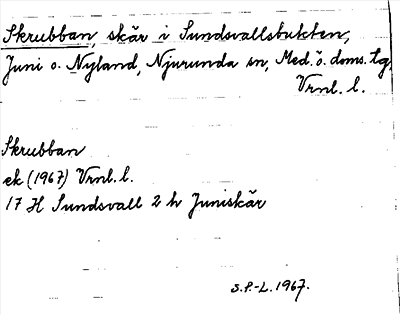 Skrubban, skär i Sundsvallsbukten,
Juni o. Nyland, Njurunda sn, Med. ö. doms. tg
Vrnl. l.
Skrubban
ek (1967) Vrnl. l.
17 H Sundsvall 2 h Juniskär
S.P.-L. 1967.